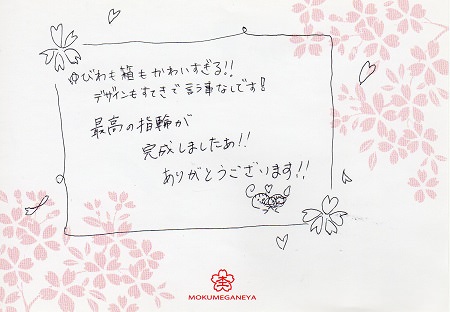 ゆびわも箱もかわいすぎる!!
デザインもすてきで言う事なしです!
最高の指輪が
完成しましたぁ!!
ありがとうございます!!
MOKUMEGANEYA